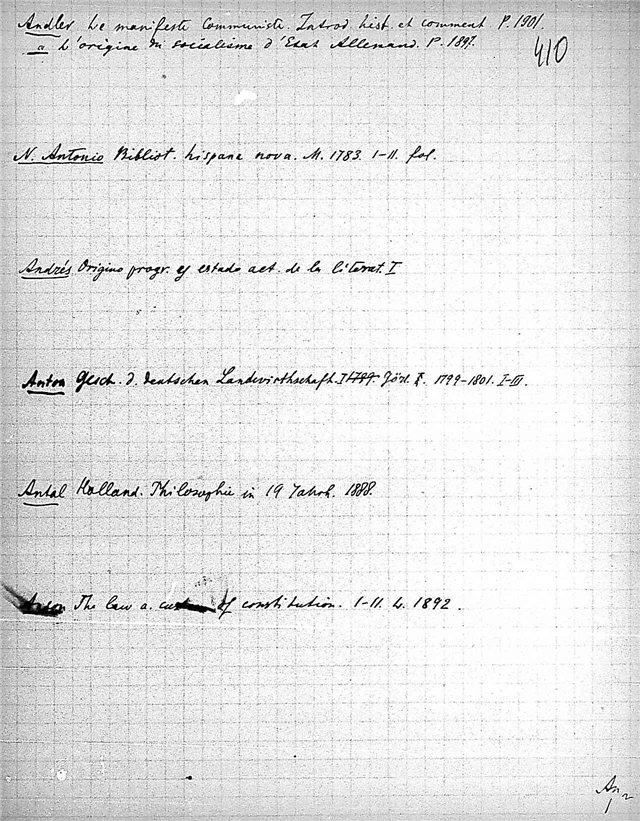 Andler Le manifeste Communiste. Introd hist. et comment P. 1901.
a L'origine du socialisme d'Etat Allemand. P. 1897.
410
N. Antonio Bibliot. hispana nova. M. 1783. I-II. fol.
Andrés Origino progr. y estado act. de la literat. I
Anton Gesch. d. deutschen Landwirthschaft. I 1799. Görl. 1799-1801. I-III.
Antal Holland. Philosophie in 19 Jahrh. 1888.
The law a. of constitution. I-II. L. 1892.
An